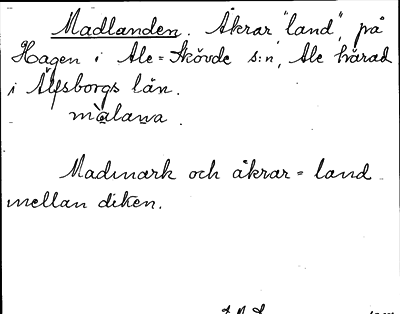 Madlanden. Åkrar "land", på
Hagen i Ale=Skövde s:n, Ale härad
i Älfsborgs län.
màlana.
Madmark och åkrar = land
mellan diken.